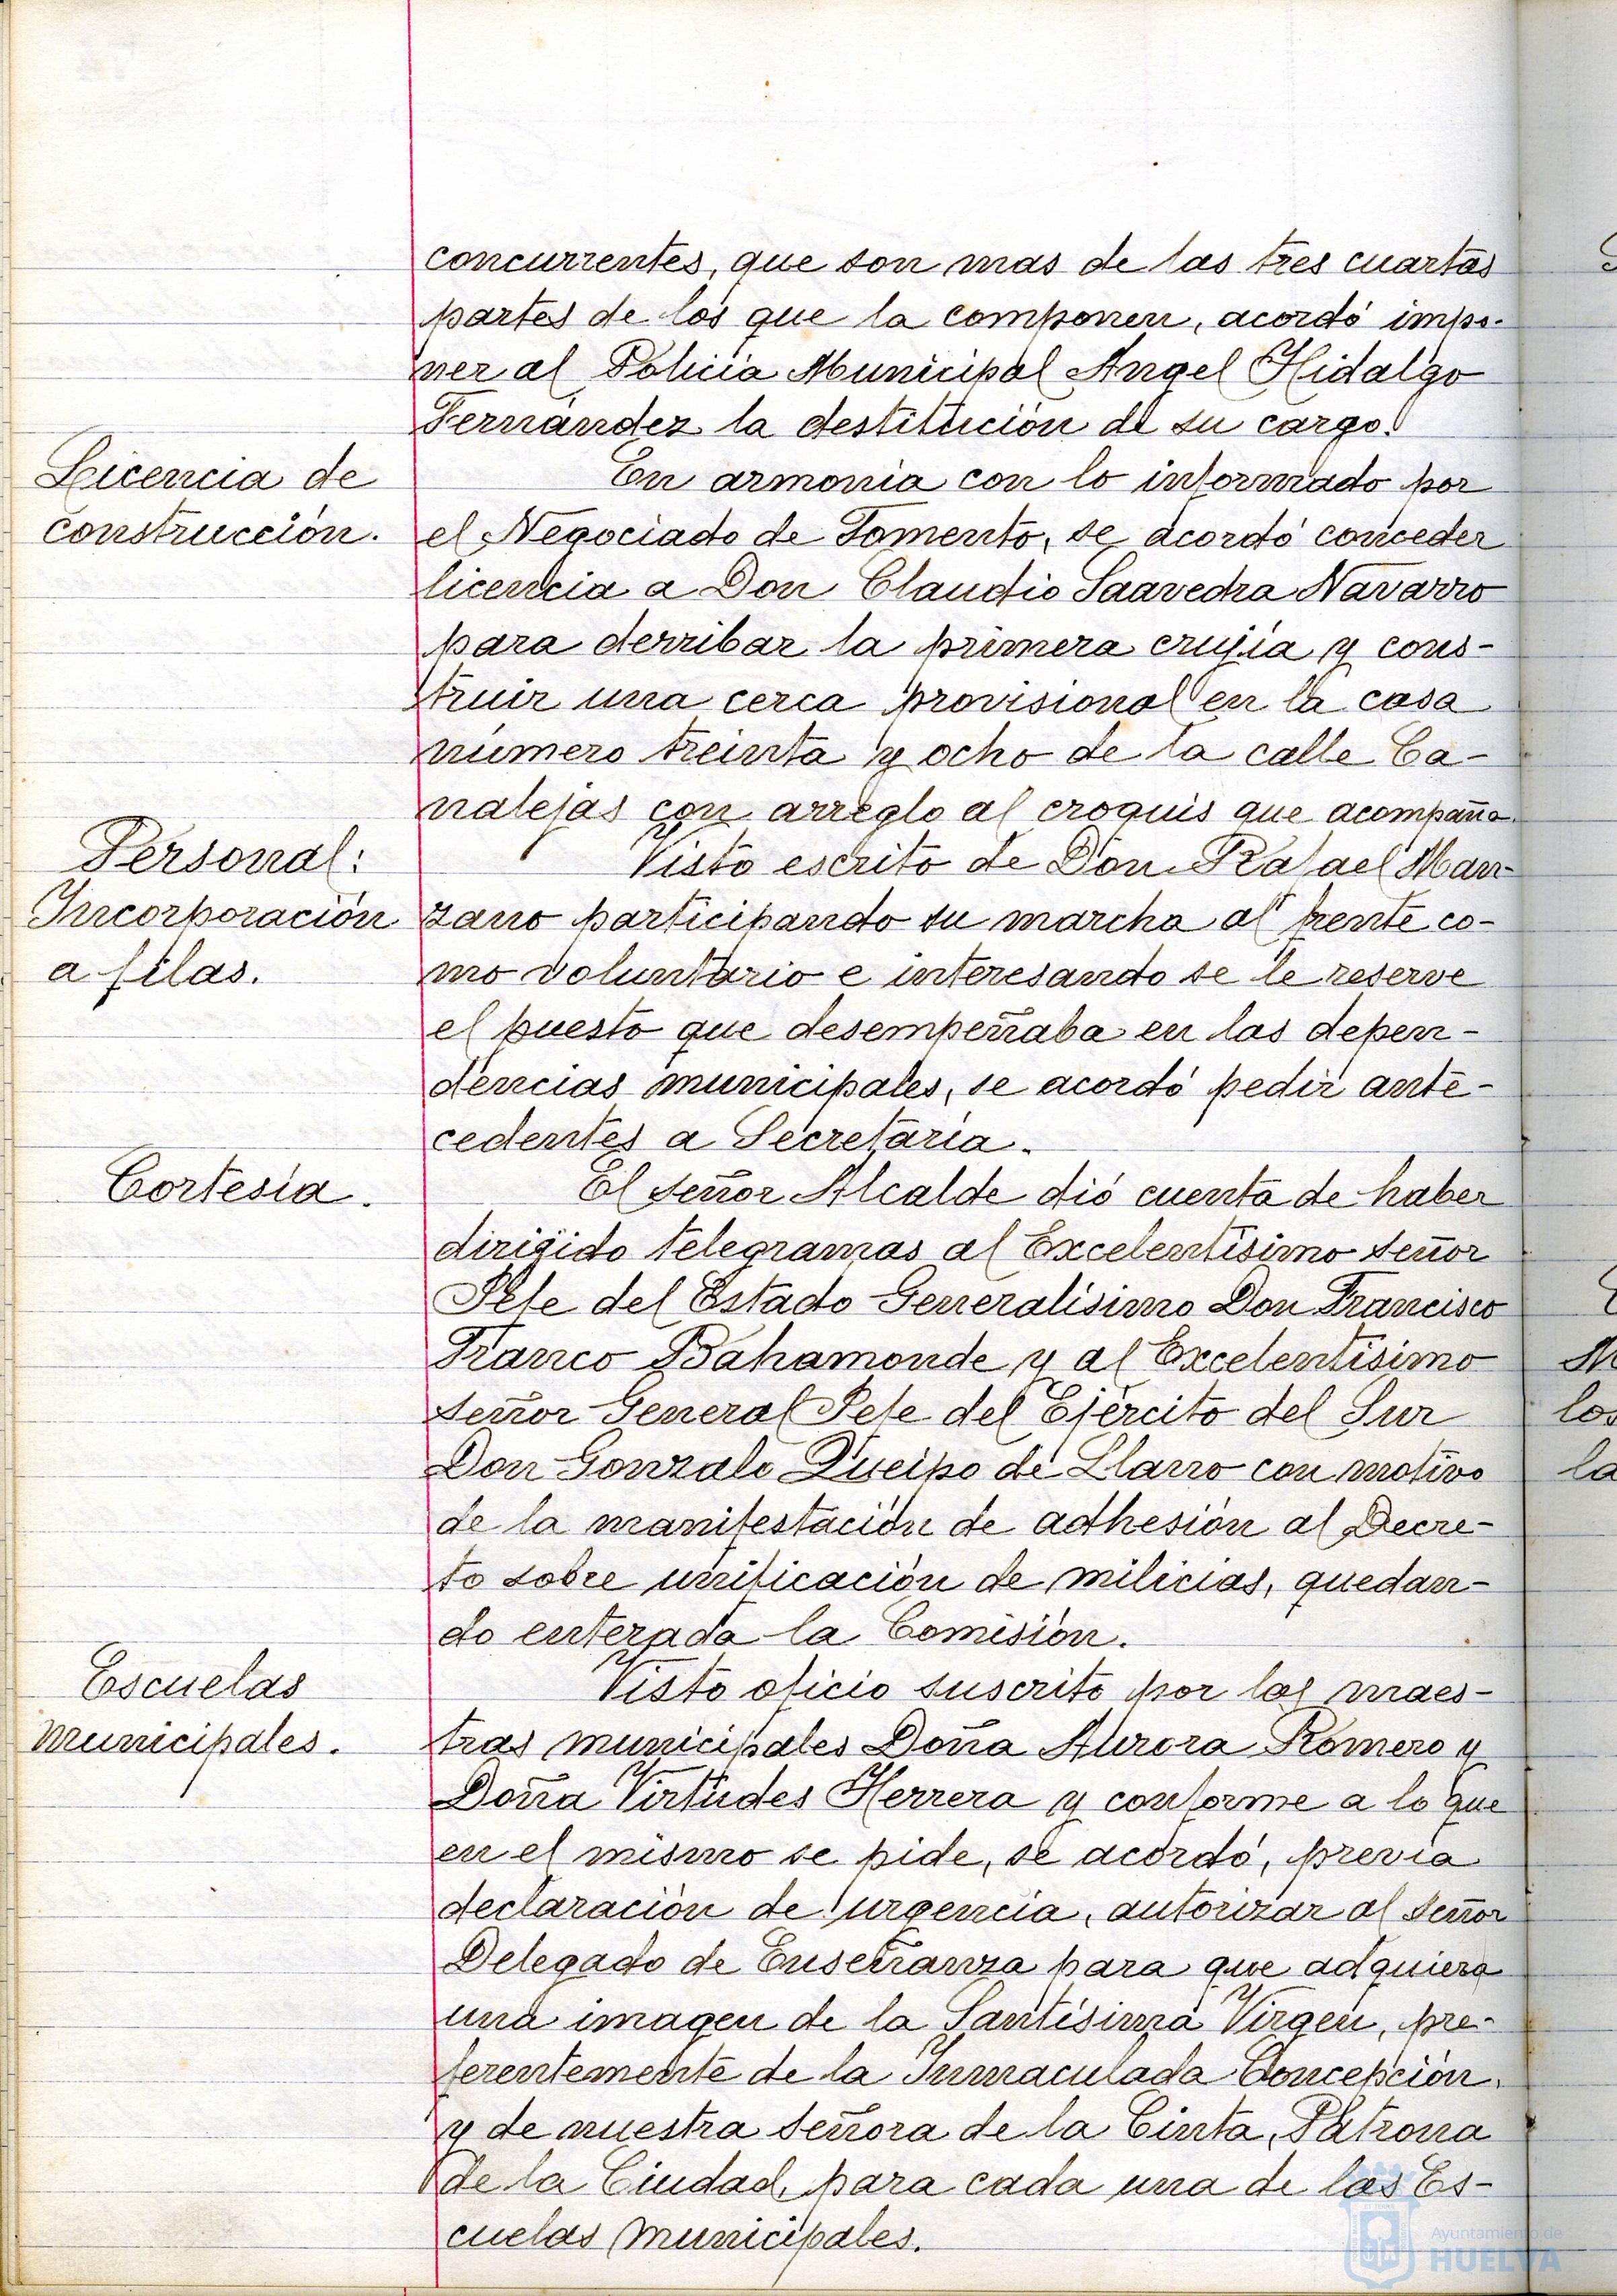 concurrentes, que son mas de las tres cuartas
partes de los que la componen, acordó impo-
ner al Policía Municipal Angel Hidalgo
Fernández la destitución de su cargo.
Licencia de
construcción.
En armonía con lo informado por
el Negociado de Fomento, se acordó conceder
licencia a Don Claudio Saavedra Navarro
para derribar la primera crujía y cons-
truir una cerca provisional en la casa
número treinta y ocho de la calle Ca-
nalejas con arreglo al croquis que acompaña.
Personal:
Incorporación
a filas.
Visto escrito de Don Rafael Man-
zano participando su marcha al frente co-
mo voluntario e interesando se le reserve
el puesto que desempeñaba en las depen-
dencias municipales, se acordó pedir ante-
cedentes a Secretaría.
Cortesía.
El señor Alcalde dió cuenta de haber
dirigido telegramas al Excelentísimo señor
Jefe del Estado Generalísimo Don Francisco
Franco Bahamonde y al Excelentísimo
señor General Jefe del Ejército del Sur
Don Gonzalo Queipo de Llano con motivo
de la manifestación de adhesión al Decre-
to sobre unificación de milicias, quedan-
do enterada la Comisión.
Escuelas
municipales.
Visto oficio suscrito por las maes-
tras municipales Doña Aurora Romero y
Doña Virtudes Herrera y conforme a lo que
en el mismo se pide, se acordó, previa
declaración de urgencia, autorizar al señor
Delegado de Enseñanza para que adquiera
una imagen de la Santísima Virgen, pre-
ferentemente de la Inmaculada Concepción,
y de nuestra señora de la Cinta, Patrona
de la Ciudad, para cada una de las Es-
cuelas municipales.
los
la
Ayuntamiento de
HUELVA